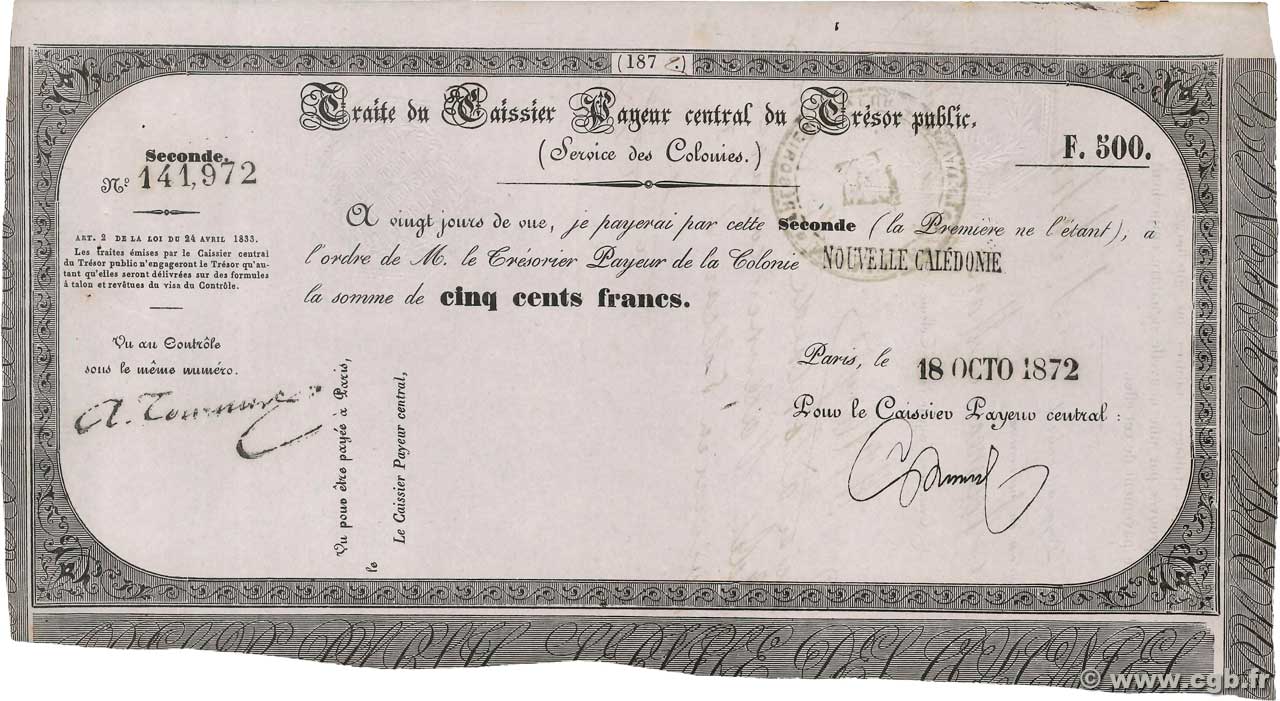 (187 )
Traite du Caissier Payeur central du Trésor public.
(Service des Colonies.)
F. 500.
Seconde.
No 141,972
ART. 2 DE LA LOI DU 24 AVRIL 1833.
Les traites émises par le Caissier central
du Trésor public n'engageront le Trésor qu'au-
tant qu'elles seront délivrées sur des formules
à talon et revêtues du visa du Contrôle.
Vu au Contrôle
sous le même numéro.
A vingt jours de vue, je payerai par cette Seconde (la Première ne l'étant), à
l'ordre de M. le Trésorier Payeur de la Colonie NOUVELLE CALÉDONIE
la somme de cinq cents francs.
Vu pour être payée à Paris,
le
Le Caissier Payeur central,
Paris, le 18 OCTO 1872
Pour le Caissier Payeur central :
© www.cgb.fr